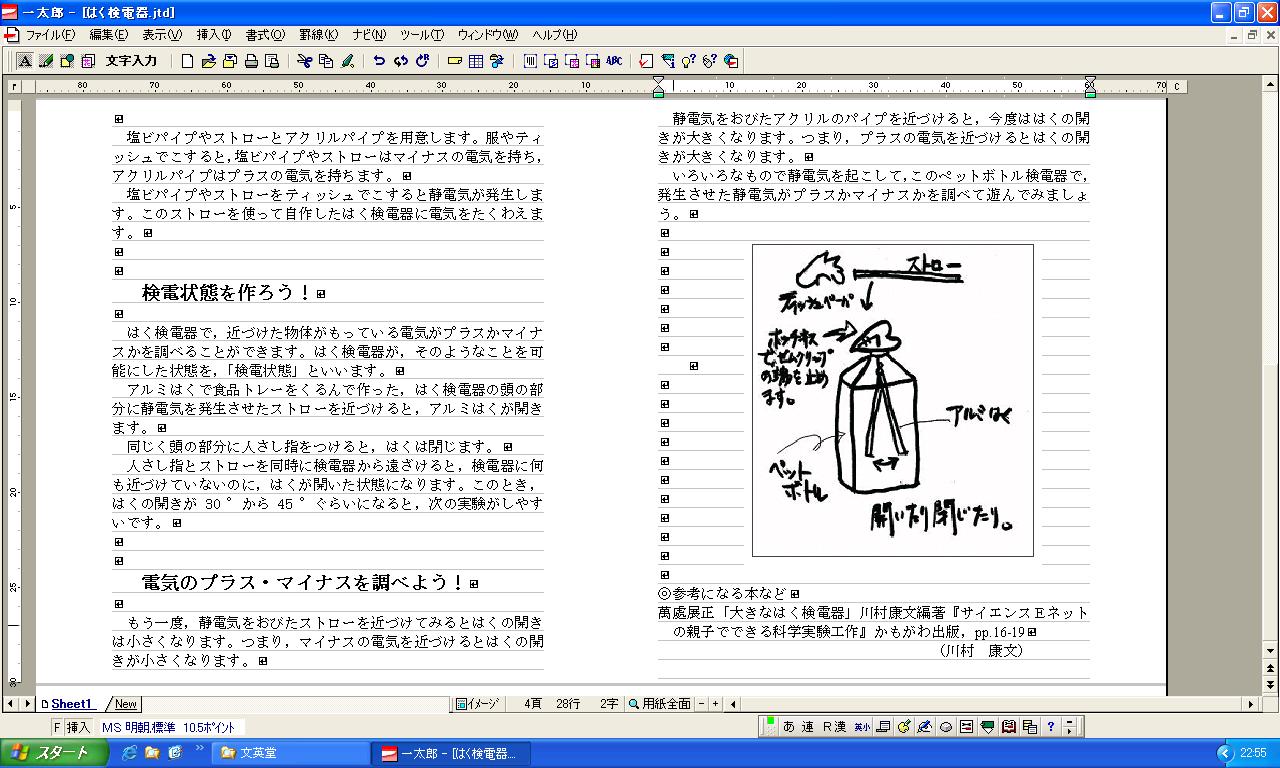 一太郎 - [はく検電器.jtd]
ファイル(F) 編集(E) 表示(V) 挿入(I) 書式(O) 罫線(K) ナビ(N) ツール(T) ウィンドウ(W) ヘルプ(H)
A 文字入力 ABC
80 70 60 50 40 30 20 10 10 20 30 40 50 60 70 C
塩ビパイプやストローとアクリルパイプを用意します。服やティ
ッシュでこすると，塩ビパイプやストローはマイナスの電気を持ち，
アクリルパイプはプラスの電気を持ちます。
塩ビパイプやストローをティッシュでこすると静電気が発生しま
す。このストローを使って自作したはく検電器に電気をたくわえま
す。
検電状態を作ろう！
はく検電器で，近づけた物体がもっている電気がプラスかマイナ
スかを調べることができます。はく検電器が，そのようなことを可
能にした状態を，「検電状態」といいます。
アルミはくで食品トレーをくるんで作った，はく検電器の頭の部
分に静電気を発生させたストローを近づけると，アルミはくが開き
ます。
同じく頭の部分に人さし指をつけると，はくは閉じます。
人さし指とストローを同時に検電器から遠ざけると，検電器に何
も近づけていないのに，はくが開いた状態になります。このとき，
はくの開きが 30 ° から 45 ° ぐらいになると，次の実験がしやす
いです。
電気のプラス・マイナスを調べよう！
もう一度，静電気をおびたストローを近づけてみるとはくの開き
は小さくなります。つまり，マイナスの電気を近づけるとはくの開
きが小さくなります。
静電気をおびたアクリルのパイプを近づけると，今度ははくの開
きが大きくなります。つまり，プラスの電気を近づけるとはくの開
きが大きくなります。
いろいろなもので静電気を起こして，このペットボトル検電器で，
発生させた静電気がプラスかマイナスかを調べて遊んでみましょ
う。
ストロー
ティッシュペーパー
ホッチキス
でゼムクリップ
の端を止め
ます。
アルミはく
ペット
ボトル
開いたり閉じたり。
◎参考になる本など
萬處展正「大きなはく検電器」川村康文編著『サイエンスＥネット
の親子でできる科学実験工作』かもがわ出版，pp.16-19
（川村　康文）
5
10
15
20
25
30
Sheet1 New イメージ 4頁 28行 2字 用紙全面 - +
F 挿入 MS 明朝,標準 10.5ポイント
あ 連 R漢 英小 ?
スタート 文英堂 一太郎 - [はく検電器... 22:55